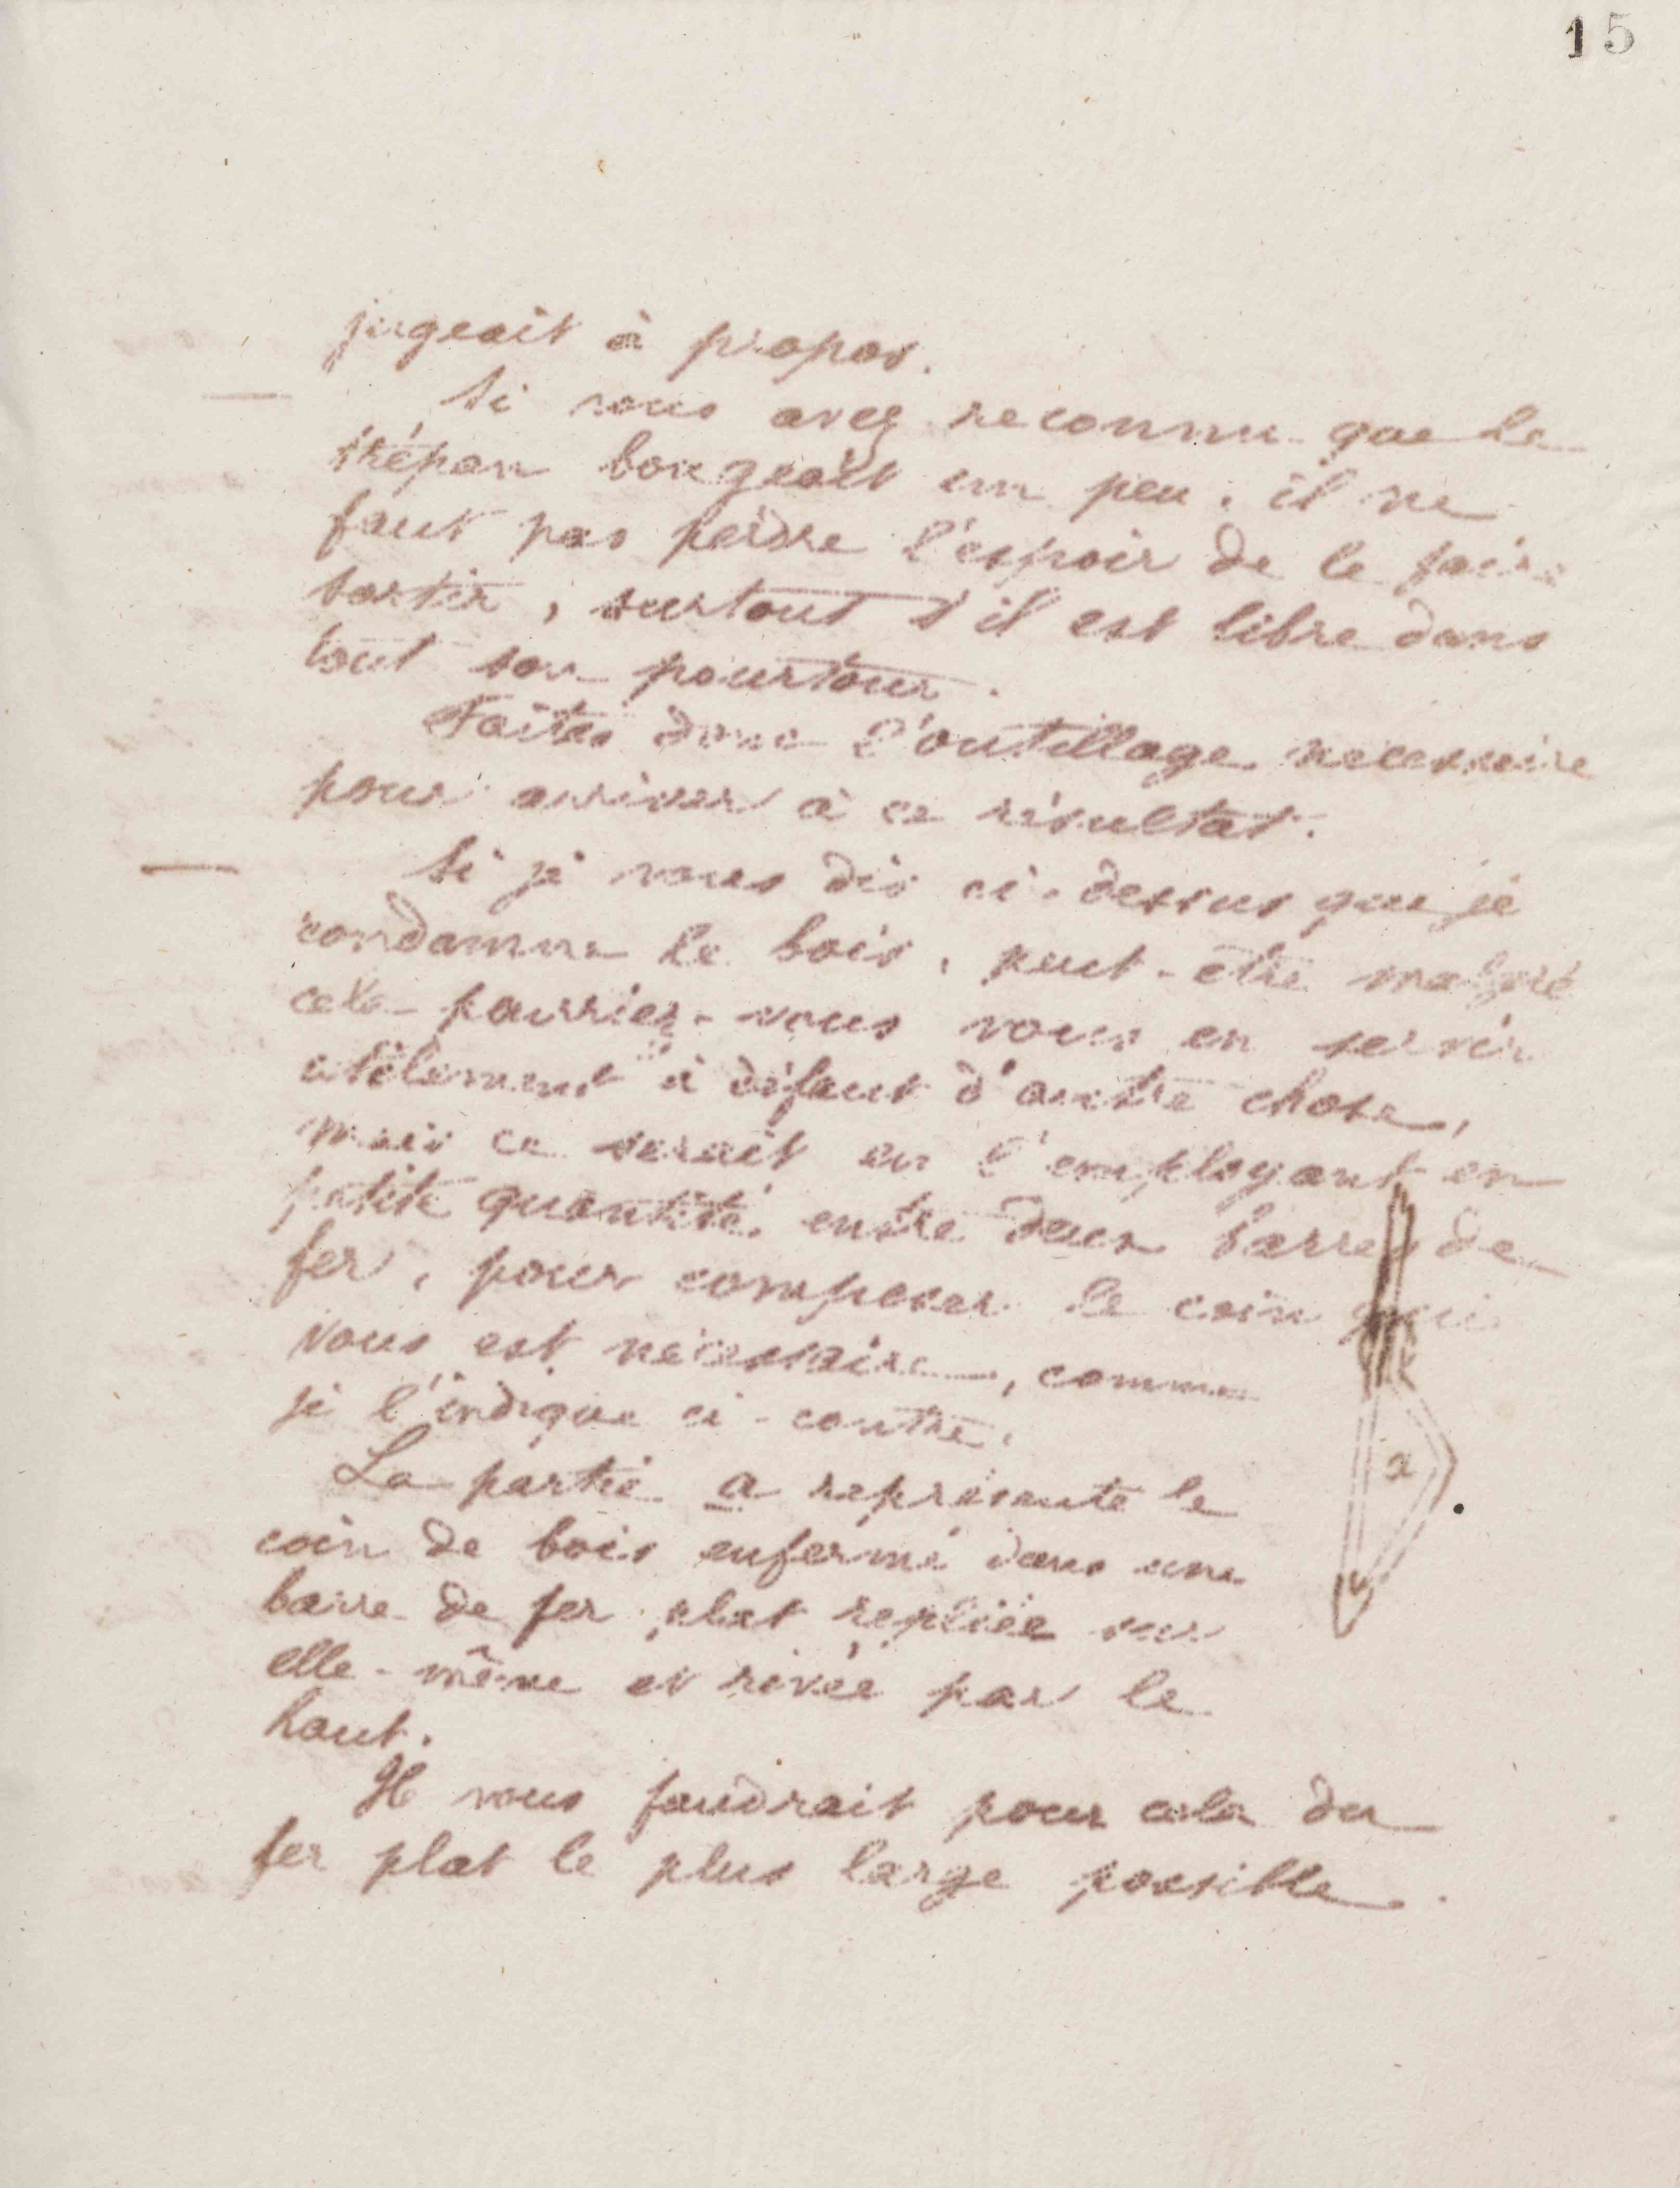 15
jugeait à propos.
Si vous avez reconnu que le
trépan bougeait un peu, il ne
faut pas perdre l'espoir de le faire
sortir, surtout s'il est libre dans
tout son pourtour.
Faites donc l'outillage nécessaire
pour arriver à ce résultat.
Si je vous dis ci-dessus que je
condamne le bois, peut-être malgré
cela pourriez-vous vous en servir
utilement à défaut d'autre chose,
mais ce serait en l'employant en
petite quantité entre deux barres de
fer, pour composer le coin qui
vous est nécessaire, comme
je l'indique ci-contre.
a
La partie a représente le
coin de bois enfermé dans une
barre de fer plat repliée sur
elle-même et rivée par le
haut.
Il vous faudrait pour cela du
fer plat le plus large possible.